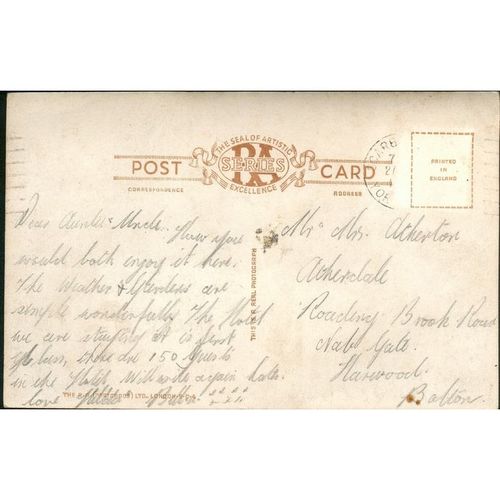 THE SEAL OF ARTISTIC
RA
SERIES
EXCELLENCE
POST CARD
CORRESPONDENCE
ADDRESS
PRINTED
IN
ENGLAND
THIS IS A REAL PHOTOGRAPH
Dear Auntie & Uncle. How you
would both enjoy it here.
The Weather & Gardens are
simple wonderfull. The Hotel
we are staying at is first
class, there are 150 guests
in the Hotel. Will write again later.
love
Mr & Mrs. Atherton
Atherdale
Roading Brook Road
Nab Gate.
Harwood.
Bolton.
LTD., LONDON